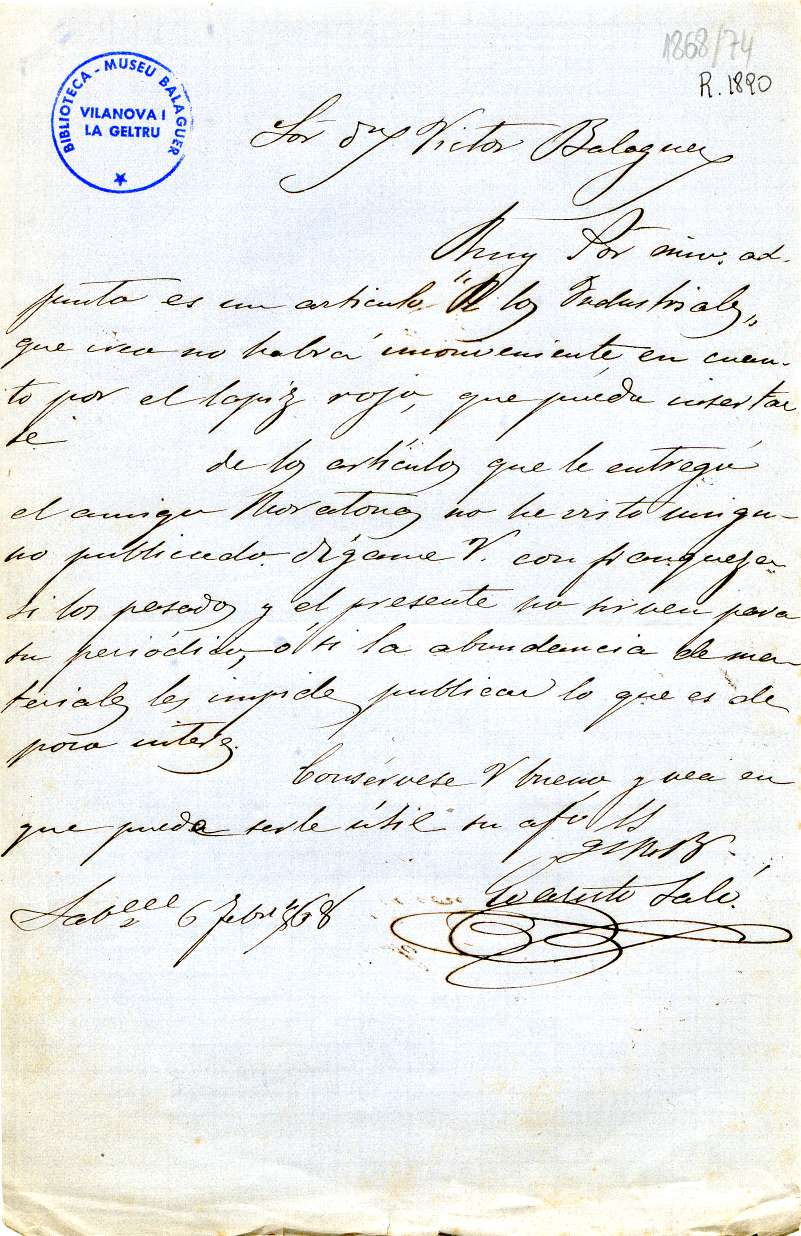 1868/74
R. 1890
BIBLIOTECA - MUSEU BALAGUER
VILANOVA I
LA GELTRU
Sór dn Victor Balaguer
Muy Sór mio: ad-
junto es un articulo "A los Industriales„
que creo no habrá inconveniente, en cuan-
to por el lapiz rojo, que pueda insertar
se
de los artículos que le entregué
el amigo Moratona no he visto ningu-
no publicado. dígame V. con franqueza
si los pasados y el presente no sirven para
su periódico, ó si la abundancia de ma-
teriales les impide publicar lo que es de
poco interes.
Consérvese V bueno y vea en
que puede serle útil su afo SS
Salé.
Sab 6 Febr 68